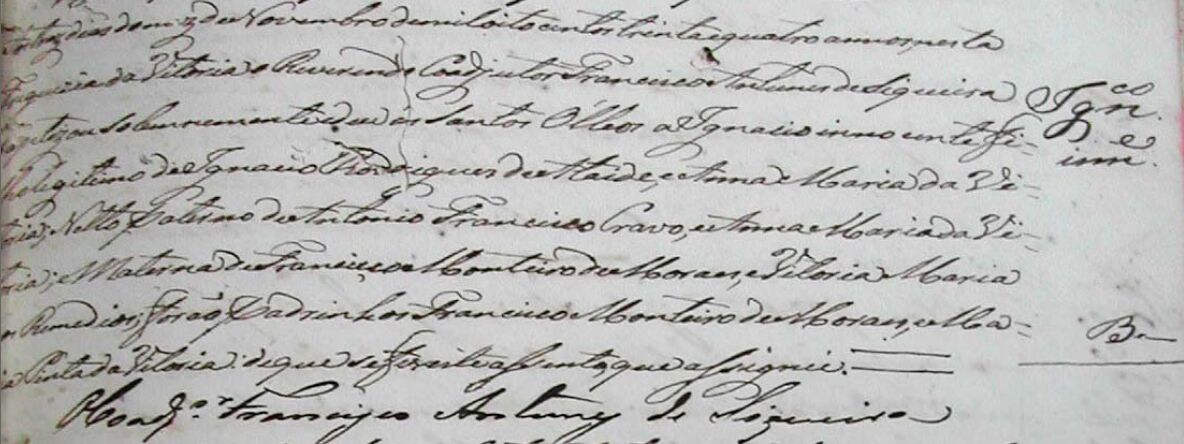 tres dias do mez de Novembro de mil oito centos trinta e quatro annos nesta
Freguezia da Vitoria o Reverendo Coadjutor Francisco Antunes de Siqueira
baptizou solemnemente e deu os Santos Olleos a Ignacio innocente fi-
lho legitimo de Ignacio Rodrigues de Ataide, e Anna Maria da Vi-
toria; Netto Paterno de Antonio Francisco Cravo, e Anna Maria da Vi-
toria; e Materna de Francisco Monteiro de Moraes, e Vitoria Maria
Remedios; forão Padrinhos Francisco Monteiro de Moraes, e Ma-
ria Pinta da Vitoria: de que se fez este assento que assignei.
O Coadj.or Francisco Antunes de Siqueira
Ign.co
inn.e
B.